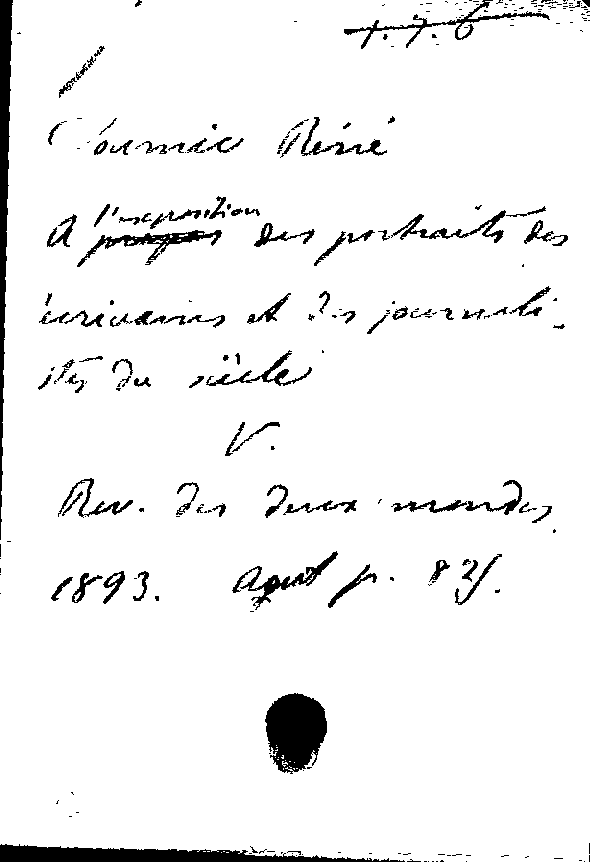 1.7.6
Doumic Réné
A l'exposition des portraits des
écrivains et des journali-
stes du siècle
V.
Rev. des deux mondes
1893. Aout p.